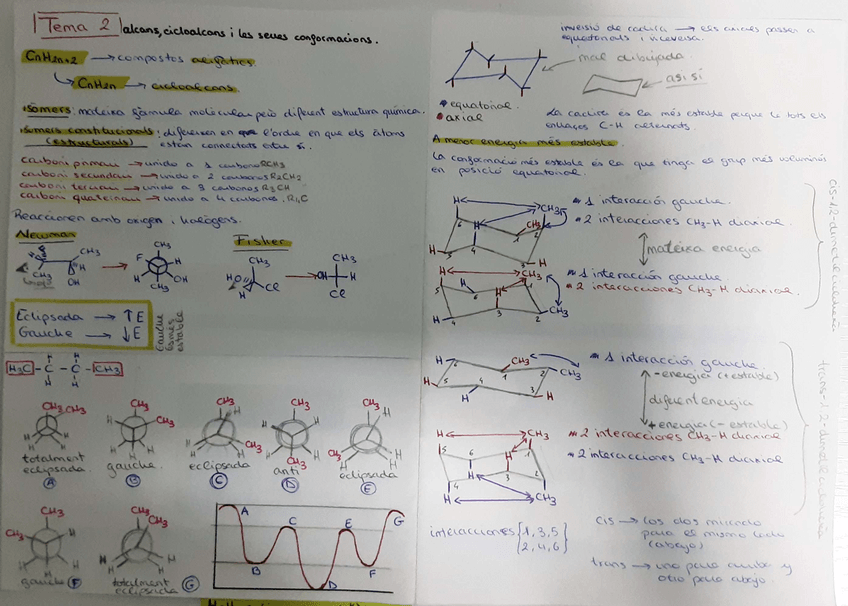 Tema 2 alcans, cicloalcans i les seues conformacions.
CnH2n+2 → compostos
CnH2n → cicloalcans
isòmers: mateixa fórmula molecular però diferent estructura química.
isomers constitucionals: difereixen en l'ordre en que els àtoms
(estructurals) estàn connectats
carboni primari → unido a 1 carbono RCH3
carboni secundari → unido a 2 carbonos R2CH2
carboni terciari → unido a 3 carbonos R3CH
carboni quaternari → unido a 4 carbonos. R4C
Reaccionen amb oxigen i halògens.
Newman
Fisher
CH3
CH3
OH
F
CH3
H
H
OH
CH3
HO
CH3
H
Cl
OH
CH3
H
Cl
Eclipsada → ↑E
Gauche → ↓E
Gauche
És més
estable
H H
H3C - C - C - CH3
H H
CH3 CH3
totalment
eclipsada
A
CH3
CH3
gauche
B
CH3
CH3
eclipsada
C
CH3
CH3
anti
D
CH3
CH3
eclipsada
E
CH3
CH3
gauche F
CH3
CH3
totalment
eclipsada G
A
B
C
D
E
F
G
inversió de cadira → els axials passen a
equatorials i viceversa.
mal dibujada
asi sí
equatorial
axial
La cadira és la més estable perque té tots els
enllaços C-H alternats.
A menor energia més estable
La conformació més estable és la que tinga el grup més voluminós
en posició equatorial.
H
CH3
CH3
H
H
H
1 interacción gauche.
2 interacciones CH3-H diaxial.
mateixa energia
H
CH3
H
H
CH3
1 interacción gauche
2 interacciones CH3-H diaxial.
cis-1,2-dimetilciclohexà
H
CH3
CH3
H
H
H
1 interacción gauche.
-energia (+estable)
diferent energia
+energia (- estable)
H
CH3
H
H
H
H
CH3
2 interacciones CH3-H diaxial
2 interacciones CH3-H diaxial
interacciones {1,3,5}
{2,4,6}
cis → los dos mirando
para el mismo lado
(abajo)
trans → uno para arriba y
otro para abajo.